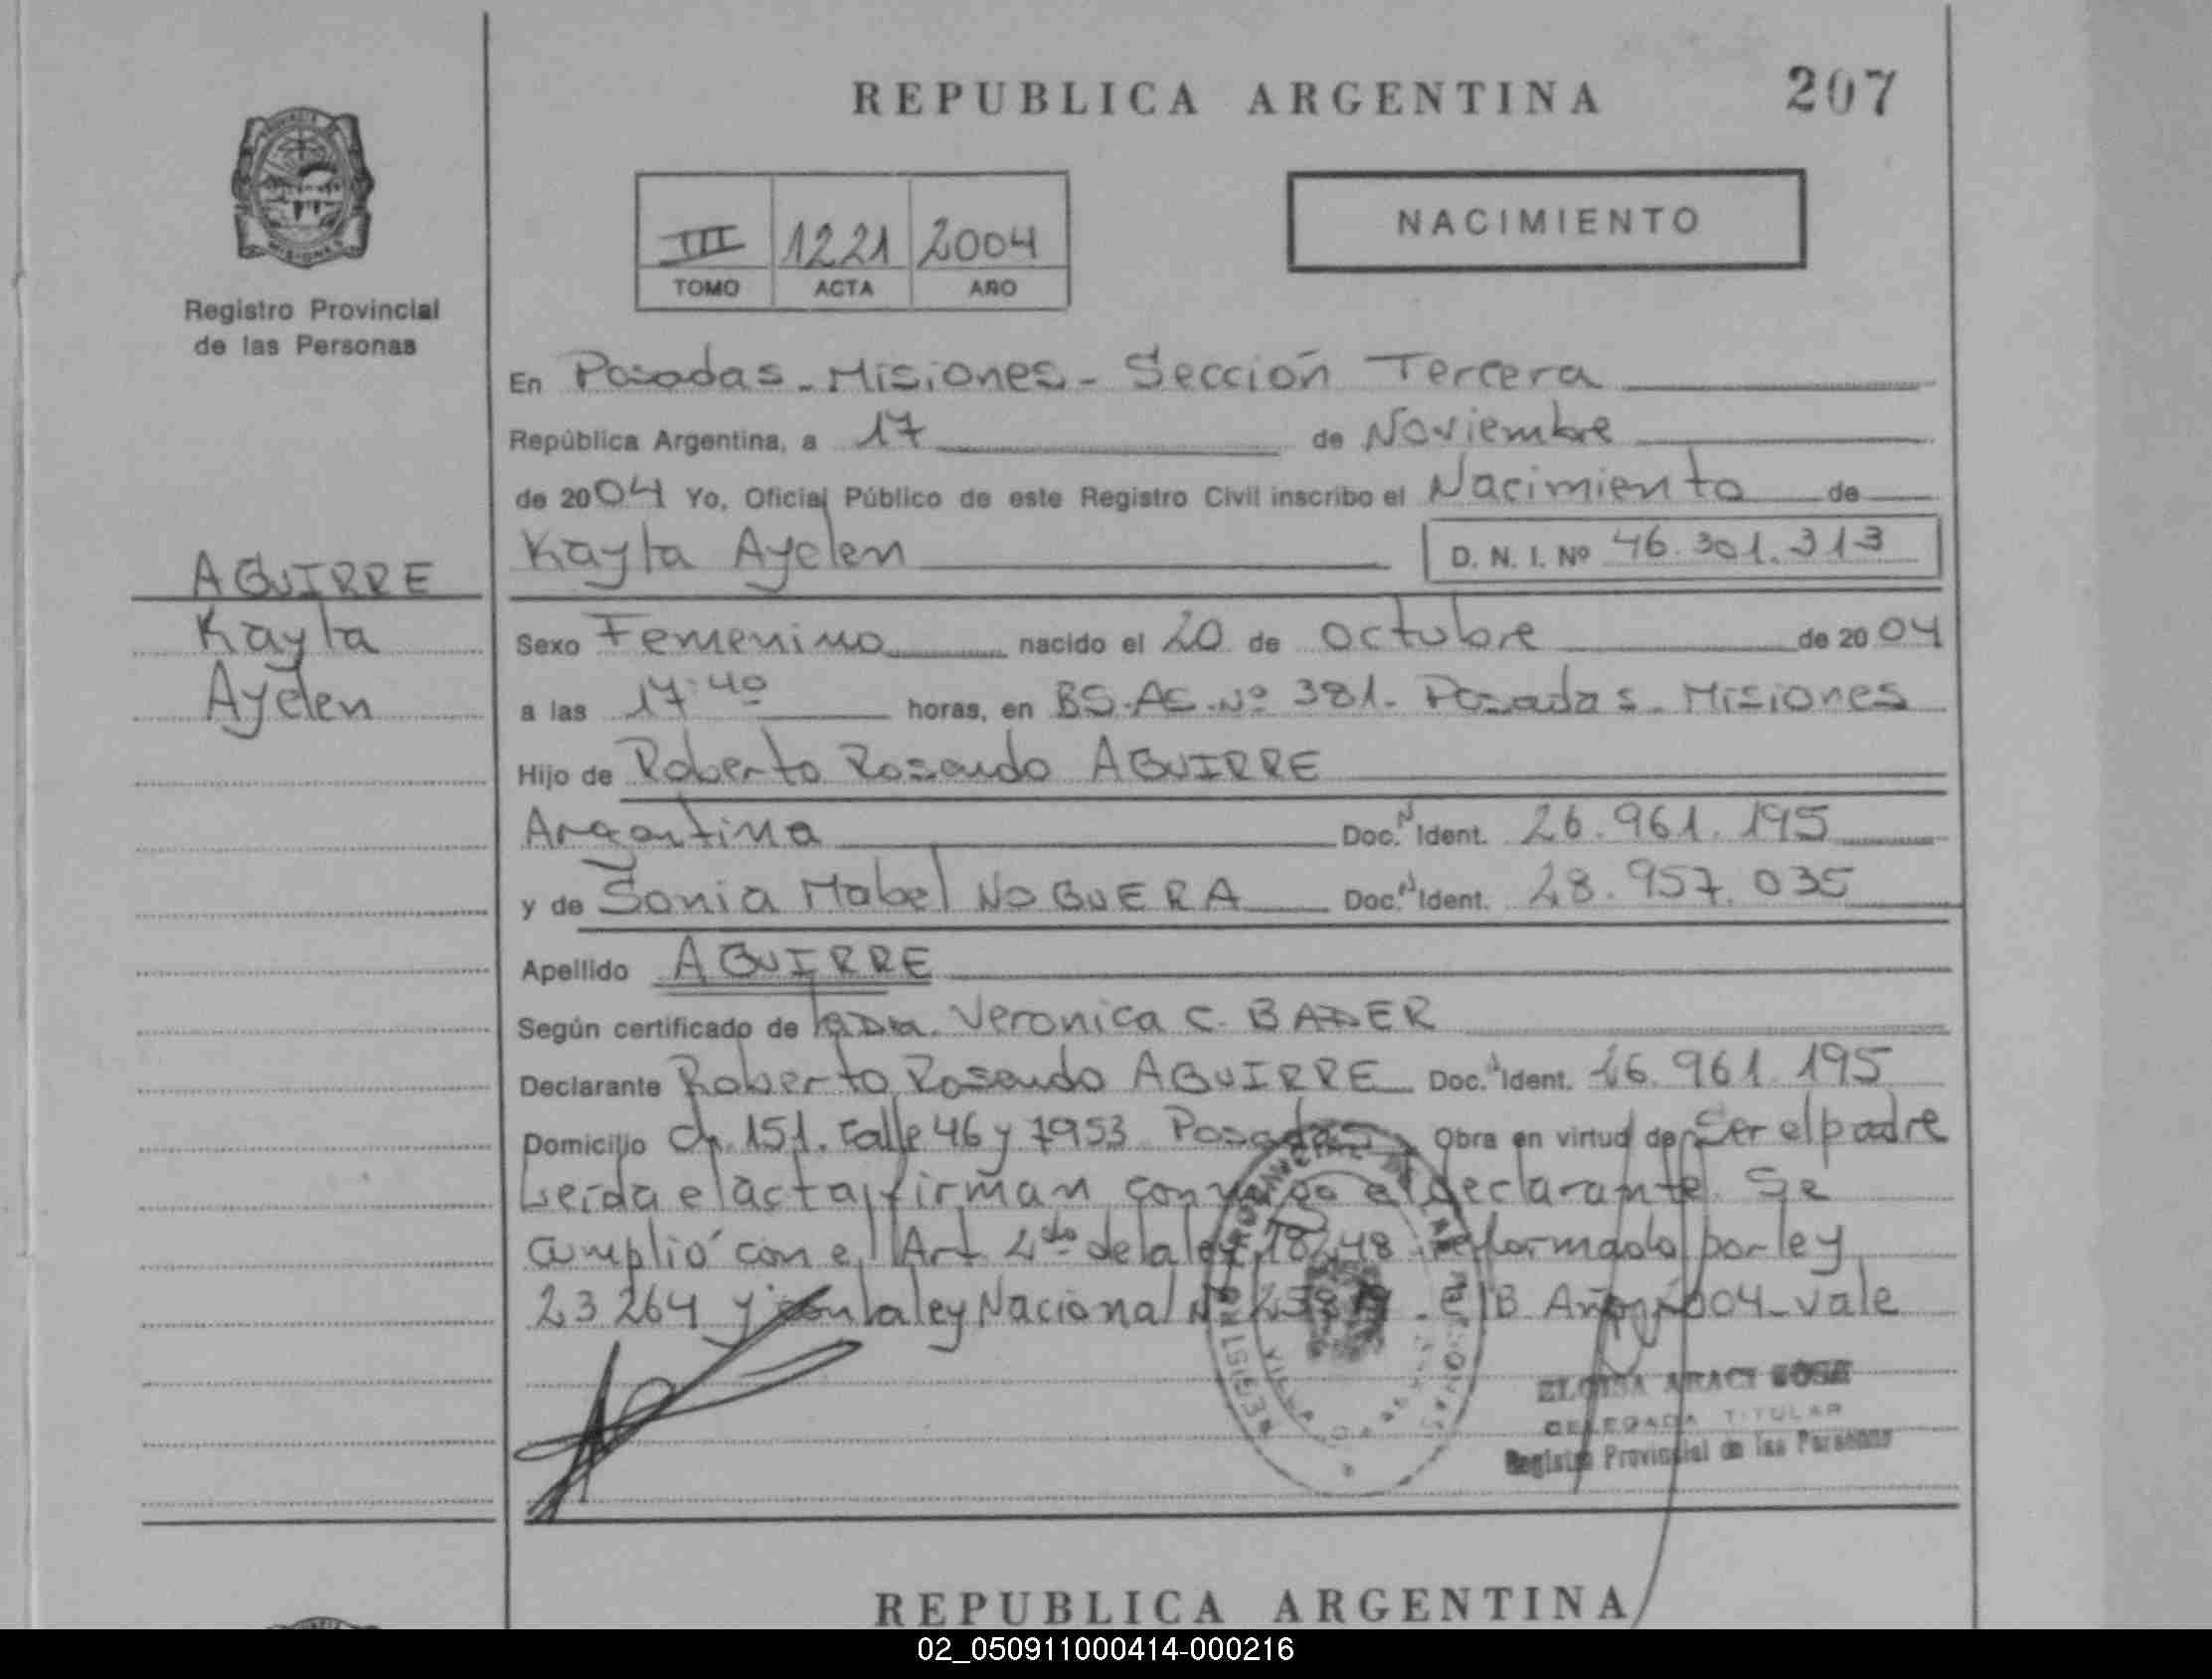 REPUBLICA ARGENTINA
207
PROVINCIA
MISIONES
Registro Provincial
de las Personas
III 1221 2004
TOMO ACTA AÑO
NACIMIENTO
En Posadas - Misiones - Sección Tercera
República Argentina, a 17 de Noviembre
de 2004 Yo, Oficial Público de este Registro Civil inscribo el Nacimiento de
Kayla Ayelen D. N. I. Nº 46.301.313
AGUIRRE
Kayla
Ayelen
Sexo Femenino nacido el 20 de octubre de 2004
a las 17:40 horas, en BS. AS. Nº 381. Posadas - Misiones
Hijo de Roberto Rosendo AGUIRRE
Argentina Doc. Ident. 26.961.195
y de Sonia Mabel NOGUERA Doc. Ident. 28.957.035
Apellido AGUIRRE
Según certificado de la Dra. Veronica C. BADER
Declarante Roberto Rosendo AGUIRRE Doc. Ident. 26.961.195
Domicilio Ch. 151. Calle 46 y 7953 Posadas Obra en virtud de Ser el padre
Leída el acta, firman conmigo el declarante. Se
cumplió con el Art 2do de la ley 18248 reformado por ley
23264 y con la ley Nacional Nº E/B Año 2004 - vale
ELOISA ARACI SOSA
DELEGADA TITULAR
Registro Provincial de las Personas
REPUBLICA ARGENTINA
02_050911000414-000216